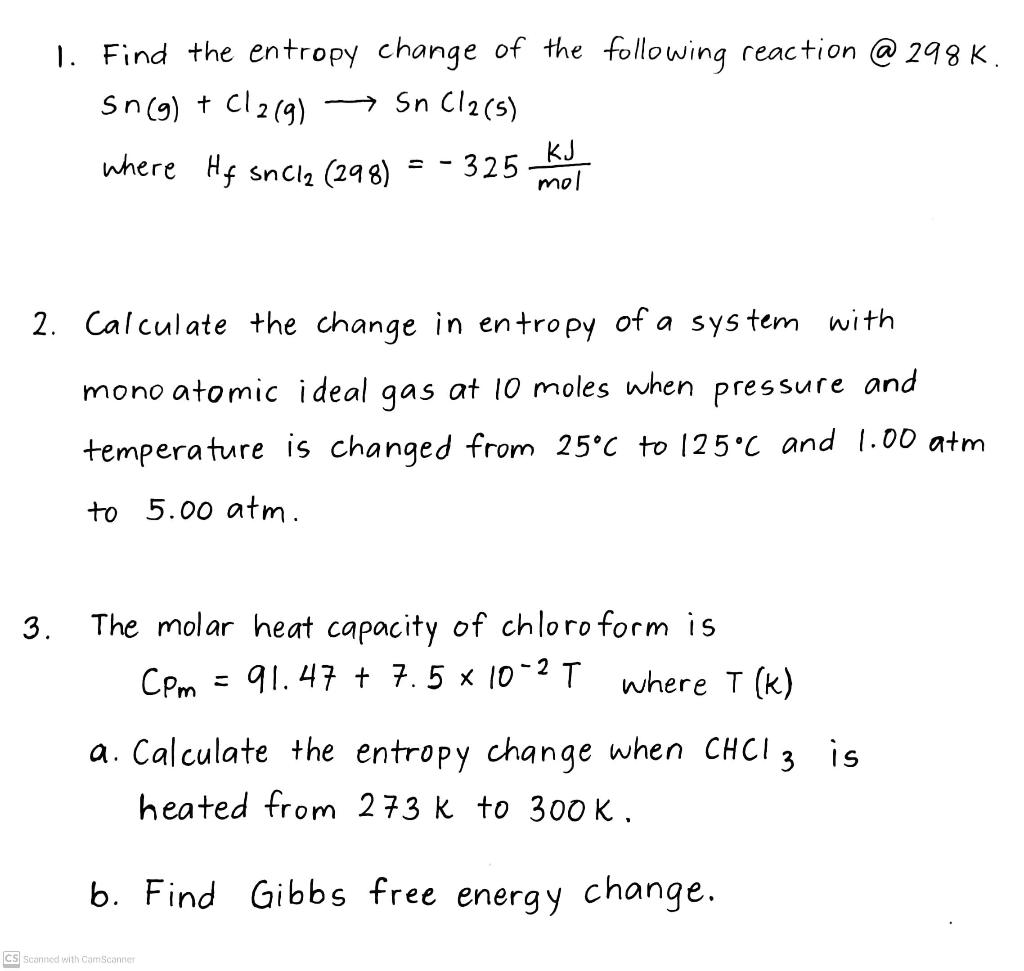 1. Find the entropy change of the following reaction @ 298 K.
Sn(g) + Cl2(g) → SnCl2(s)
where Hf SnCl2 (298) = -325 KJ/mol
2. Calculate the change in entropy of a system with
monoatomic ideal gas at 10 moles when pressure and
temperature is changed from 25°C to 125°C and 1.00 atm
to 5.00 atm.
3. The molar heat capacity of chloroform is
CPm = 91.47 + 7.5 x 10-2 T where T (K)
a. Calculate the entropy change when CHCl3 is
heated from 273 K to 300 K.
b. Find Gibbs free energy change.
CS Scanned with CamScanner